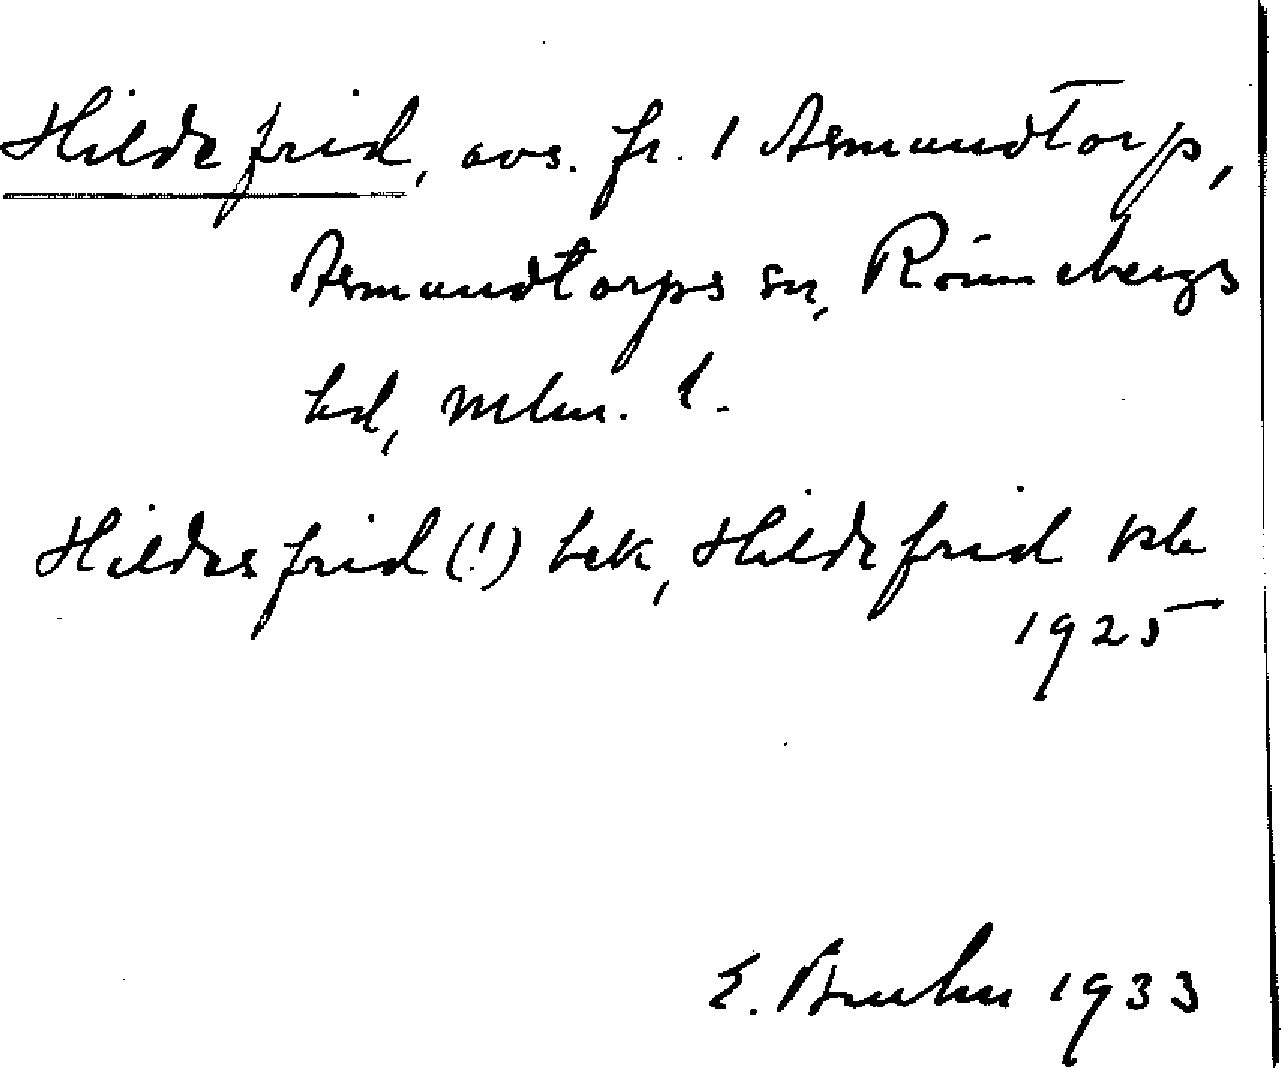 Hildefrid, avs. fr. 1 Asmundtorp,
Asmundtorps sn, Rönnebergs
hd, Mlm. l.
Hildesfrid (!) bek, Hildefrid kb
1925
E. Bruhn 1933